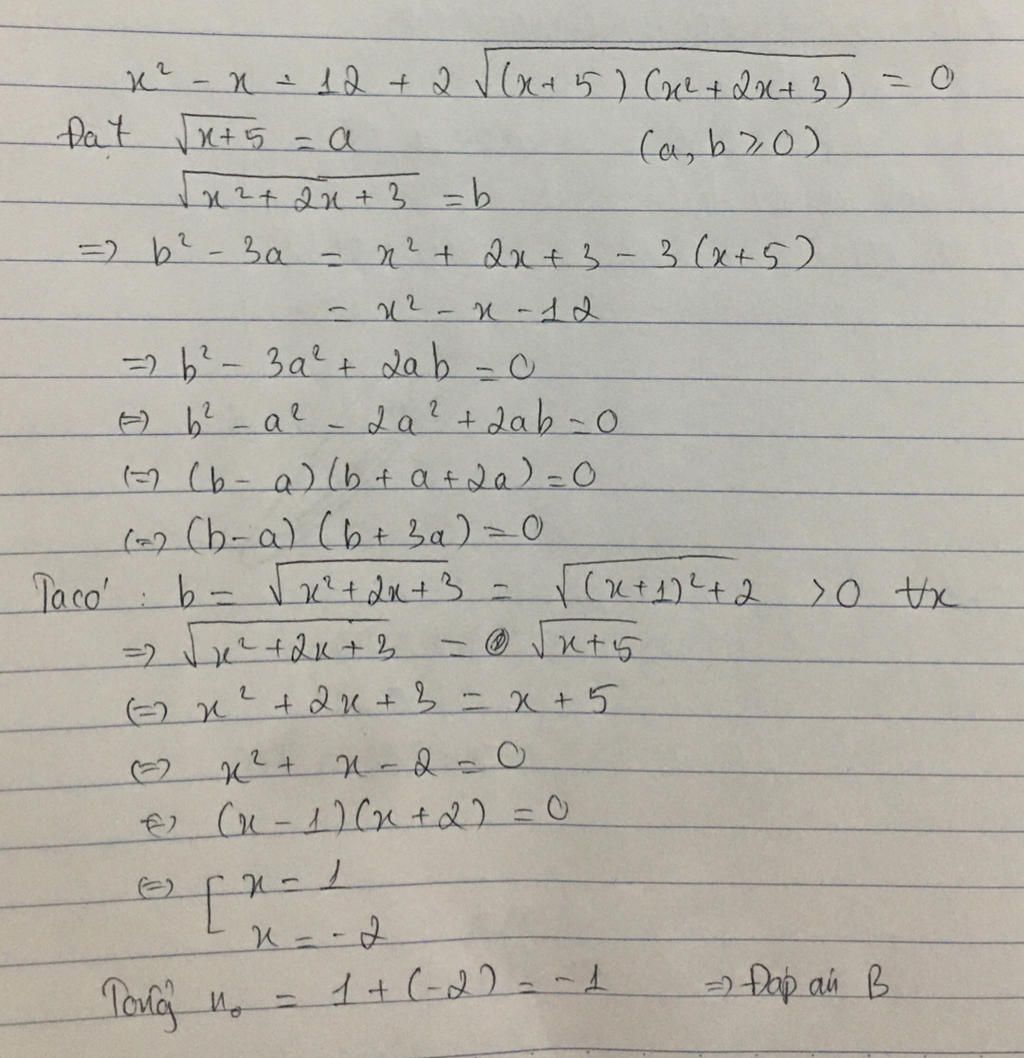 x² - x - 12 + 2 √((x+5)(x²+2x+3)) = 0
Đặt √(x+5) = a (a, b ⩾ 0)
√(x²+2x+3) = b
=> b² - 3a = x² + 2x + 3 - 3(x+5)
= x² - x - 12
=> b² - 3a² + 2ab = 0
<=> b² - a² - 2a² + 2ab = 0
<=> (b - a)(b + a + 2a) = 0
<=> (b-a) (b + 3a) = 0
Ta có : b = √(x²+2x+3) = √((x+1)²+2) > 0 ∀x
=> √(x²+2x+3) = √(x+5)
<=> x² + 2x + 3 = x + 5
<=> x² + x - 2 = 0
<=> (x - 1)(x + 2) = 0
<=> [ x = 1
x = -2
Tổng n₀ = 1 + (-2) = -1 => Đáp án B